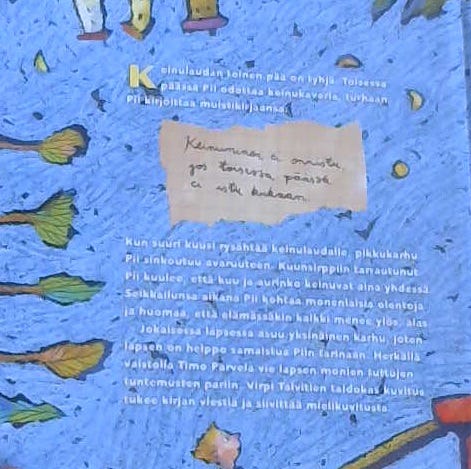 Keinulaudan toinen pää on tyhjä. Toisessa
päässä Pii odottaa keinukaveria, turhaan.
Pii kirjoittaa muistikirjaansa:
Keinuminen ei onnistu,
jos toisessa päässä
ei istu kukaan.
Kun suuri kuusi rysähtää keinulaudalle, pikkukarhu
Pii sinkoutuu avaruuteen. Kuunsirppiin tarrautunut
Pii kuulee, että kuu ja aurinko keinuvat aina yhdessä.
Seikkailunsa aikana Pii kohtaa monenlaisia olentoja
ja huomaa, että elämässäkin kaikki menee ylös, alas
Jokaisessa lapsessa asuu yksinäinen karhu, joten
lapsen on helppo samaistua Piin tarinaan. Herkällä
vaistolla Timo Parvela vie lapsen monien tuttujen
tuntemusten pariin. Virpi Talvitien taidokas kuvitus
tukee kirjan viestiä ja siivittää mielikuvitusta.